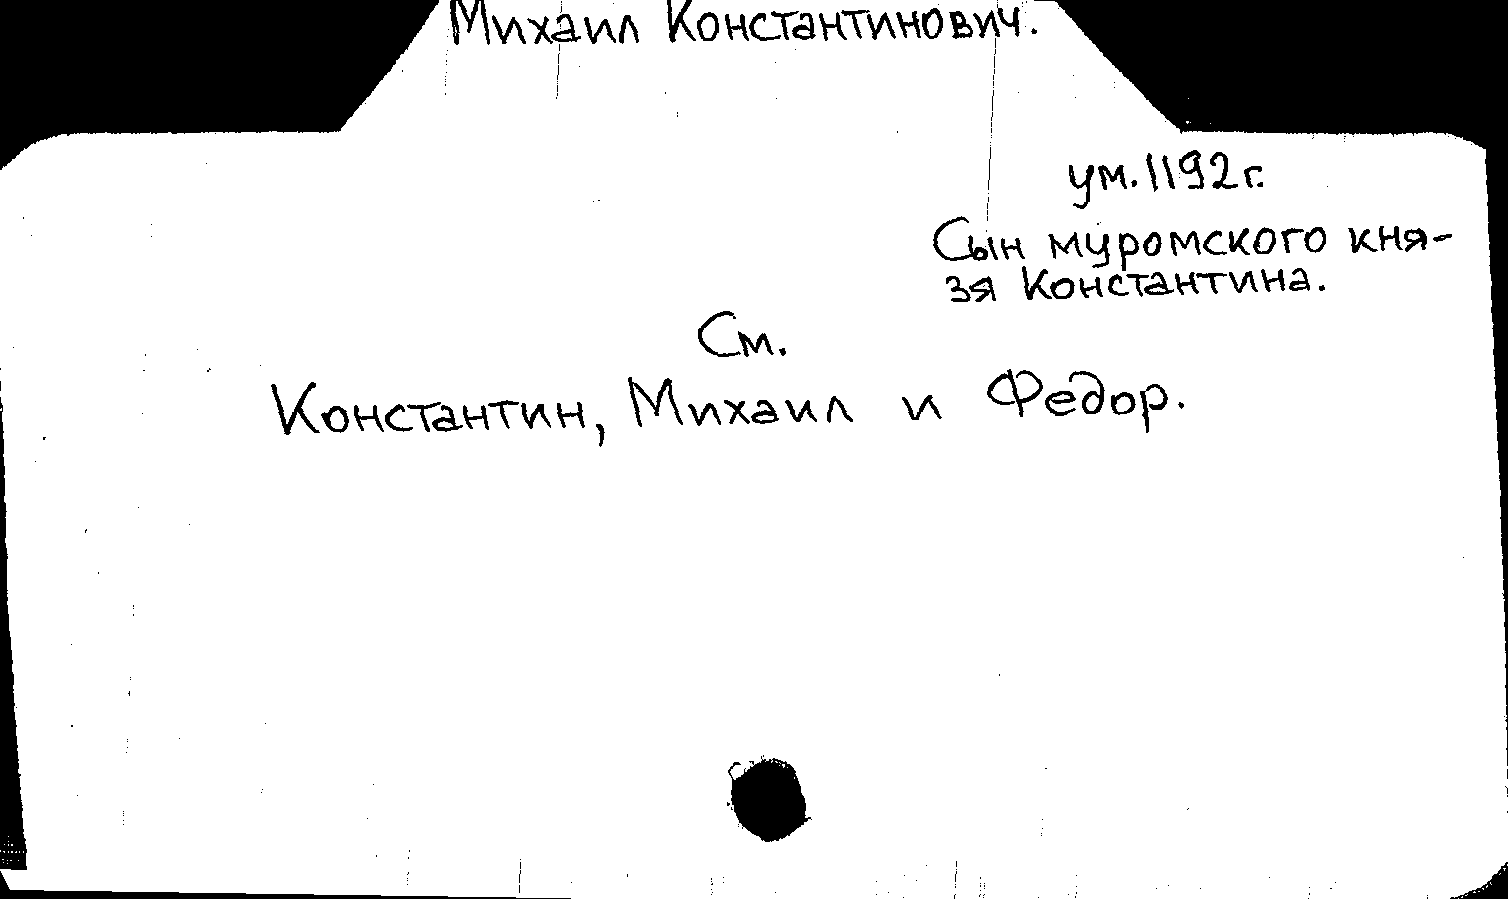 Михаил Константинович.
ум. 1192 г.
Сын муромского кня-
зя Константина.
См.
Константин, Михаил и Федор.